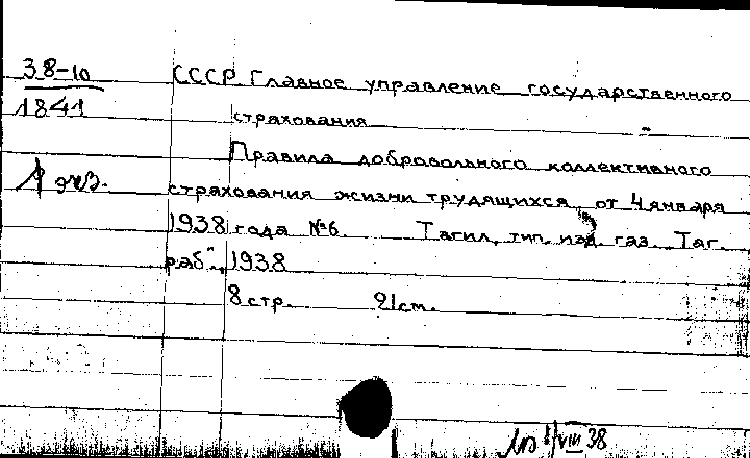 38-10
1841
1 экз.
СССР. Главное управление государственного
страхования
Правила добровольного коллективного
страхования жизни трудящихся, от 4 января
1938 года №6. Тагил, тип. изд. газ. Таг.
раб.", 1938
8 стр. 21 cm.
VIII 38